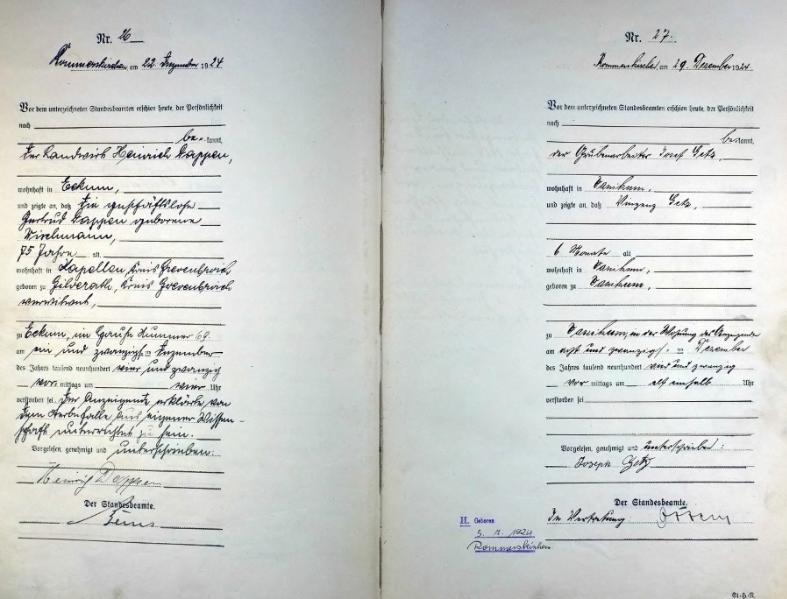 Nr. 26
Rommerskirchen, am 22. Dezember 1924
Vor dem unterzeichneten Standesbeamten erschien heute, der Persönlichkeit
nach
be- kannt,
der Landwirt Heinrich Dappen,
wohnhaft in Eckum,
und zeigte an, daß die geschäftslose
Gertrud Dappen geborene
75 Jahre alt,
wohnhaft in Kapellen, Kreis Grevenbroich
geboren zu Gilverath, Kreis Grevenbroich
verwitwet,
zu Eckum, im Hause Nummer 69
am ein und zwanzigsten Dezember
des Jahres tausend neunhundert vier und zwanzig
vor mittags um vier Uhr
verstorben sei. Der Anzeigende erklärte von
dem Sterbefalle aus eigener Wissen-
schaft unterrichtet zu sein.
Vorgelesen, genehmigt und unterschrieben:
Heinrich Dappen
Der Standesbeamte.
Nr. 27.
Rommerskirchen am 29. Dezember 1924.
Vor dem unterzeichneten Standesbeamten erschien heute, der Persönlichkeit
nach
bekannt,
der Grubenarbeiter Josef Getz,
wohnhaft in Vanikum,
und zeigte an, daß Vinzenz Getz,
6 Monate alt
wohnhaft in Vanikum,
geboren zu Vanikum,
zu Vanikum, in der Wohnung des Anzeigenden
am acht und zwanzigsten Dezember
des Jahres tausend neunhundert vier und zwanzig
vor mittags um elf einhalb Uhr
verstorben sei
Vorgelesen, genehmigt und unterschrieben:
Joseph Getz
Der Standesbeamte.
In Vertretung
H. Geboren
1924
Rommerskirchen